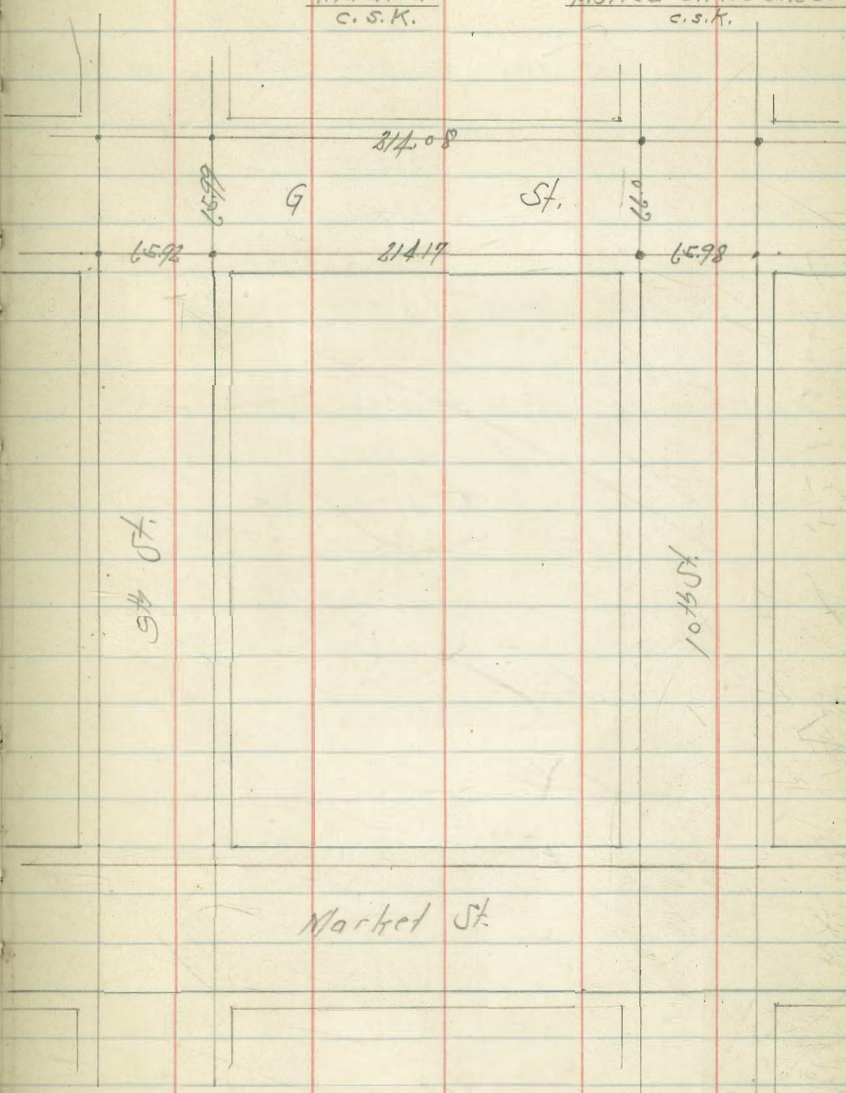 C.S.K.
C.S.K.
214.08
65.99
G St.
66.0
65.92
214.17
65.98
9th St.
10th St.
Market St.